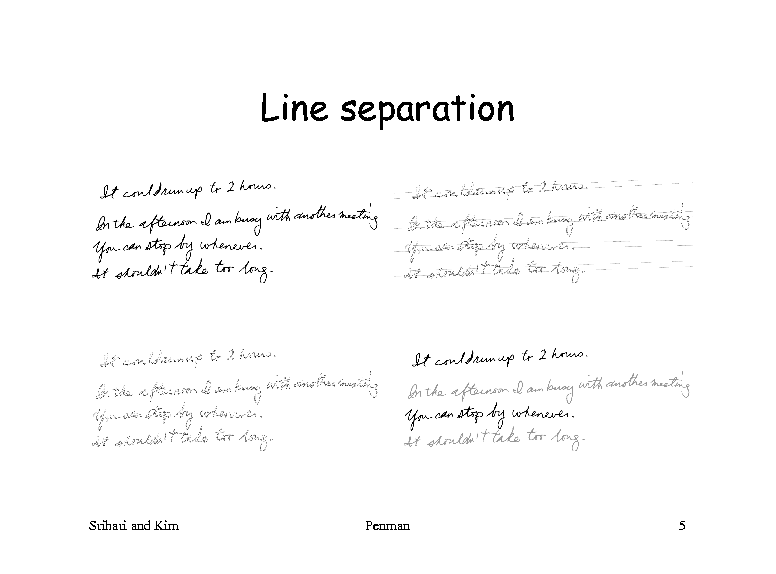 Line separation
It could run up to 2 hours.
In the afternoon I am busy with another meeting
You can stop by whenever.
It shouldn't take too long.
It could run up to 2 hours.
In the afternoon I am busy with another meeting
You can stop by whenever.
It shouldn't take too long.
It could run up to 2 hours.
In the afternoon I am busy with another meeting
You can stop by whenever.
It shouldn't take too long.
It could run up to 2 hours.
In the afternoon I am busy with another meeting
You can stop by whenever.
It shouldn't take too long.
Srihari and Kim
Penman
5